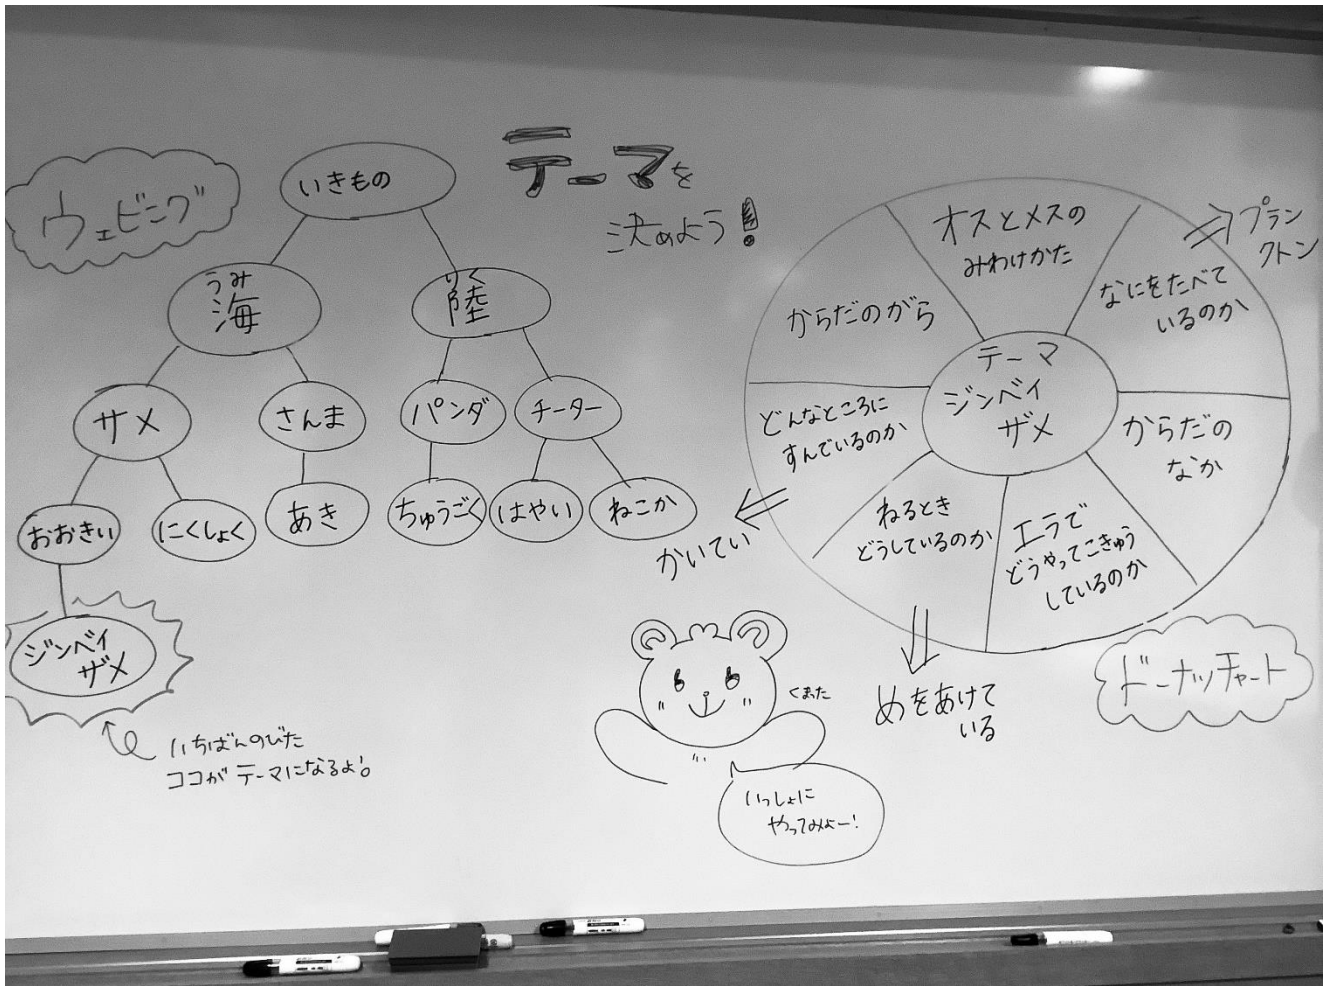 ウェビング
いきもの
テーマを
決めよう!
うみ
海
りく
陸
サメ
さんま
パンダ
チーター
おおきい
にくしょく
あき
ちゅうごく
はやい
ねこか
ジンベイ
ザメ
いちばんのびた
ココがテーマになるよ!
オスとメスの
みわけかた
なにをたべて
いるのか
プラン
クトン
からだのがら
テーマ
ジンベイ
ザメ
どんなところに
すんでいるのか
からだの
なか
ねるとき
どうしているのか
エラで
どうやってこきゅう
しているのか
かいてい
めをあけて
いる
ドーナッツチャート
くまった
いっしょに
やってみよー!